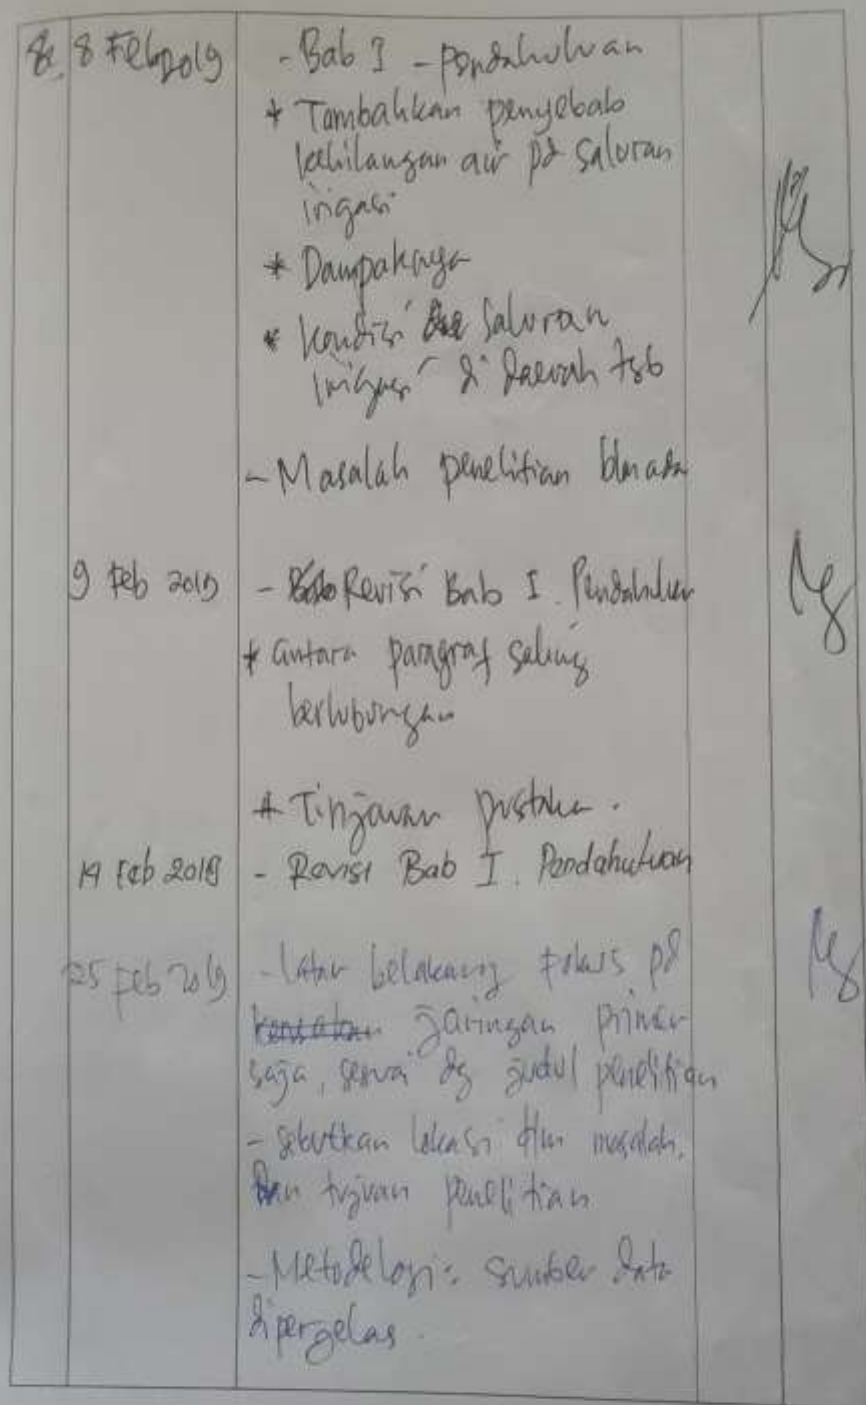 8. 8 Feb 2019 - Bab I - Pendahuluan
* Tambahkan penyebab
kehilangan air pd saluran
irigasi
* Dampaknya
* Kondisi saluran
irigasi di daerah tsb
- Masalah penelitian blm ada
9 Feb 2019 - Revisi Bab I. Pendahuluan
* antara paragraf saling
berhubungan
* Tinjauan pustaka.
19 Feb 2019 - Revisi Bab I. Pendahuluan
25 Feb 2019 - Latar belakang fokus pd
jaringan primer
saja, sesuai dg judul penelitian
- sebutkan lokasi dlm masalah,
dan tujuan penelitian
- Metodelogi: sumber data
diperjelas.